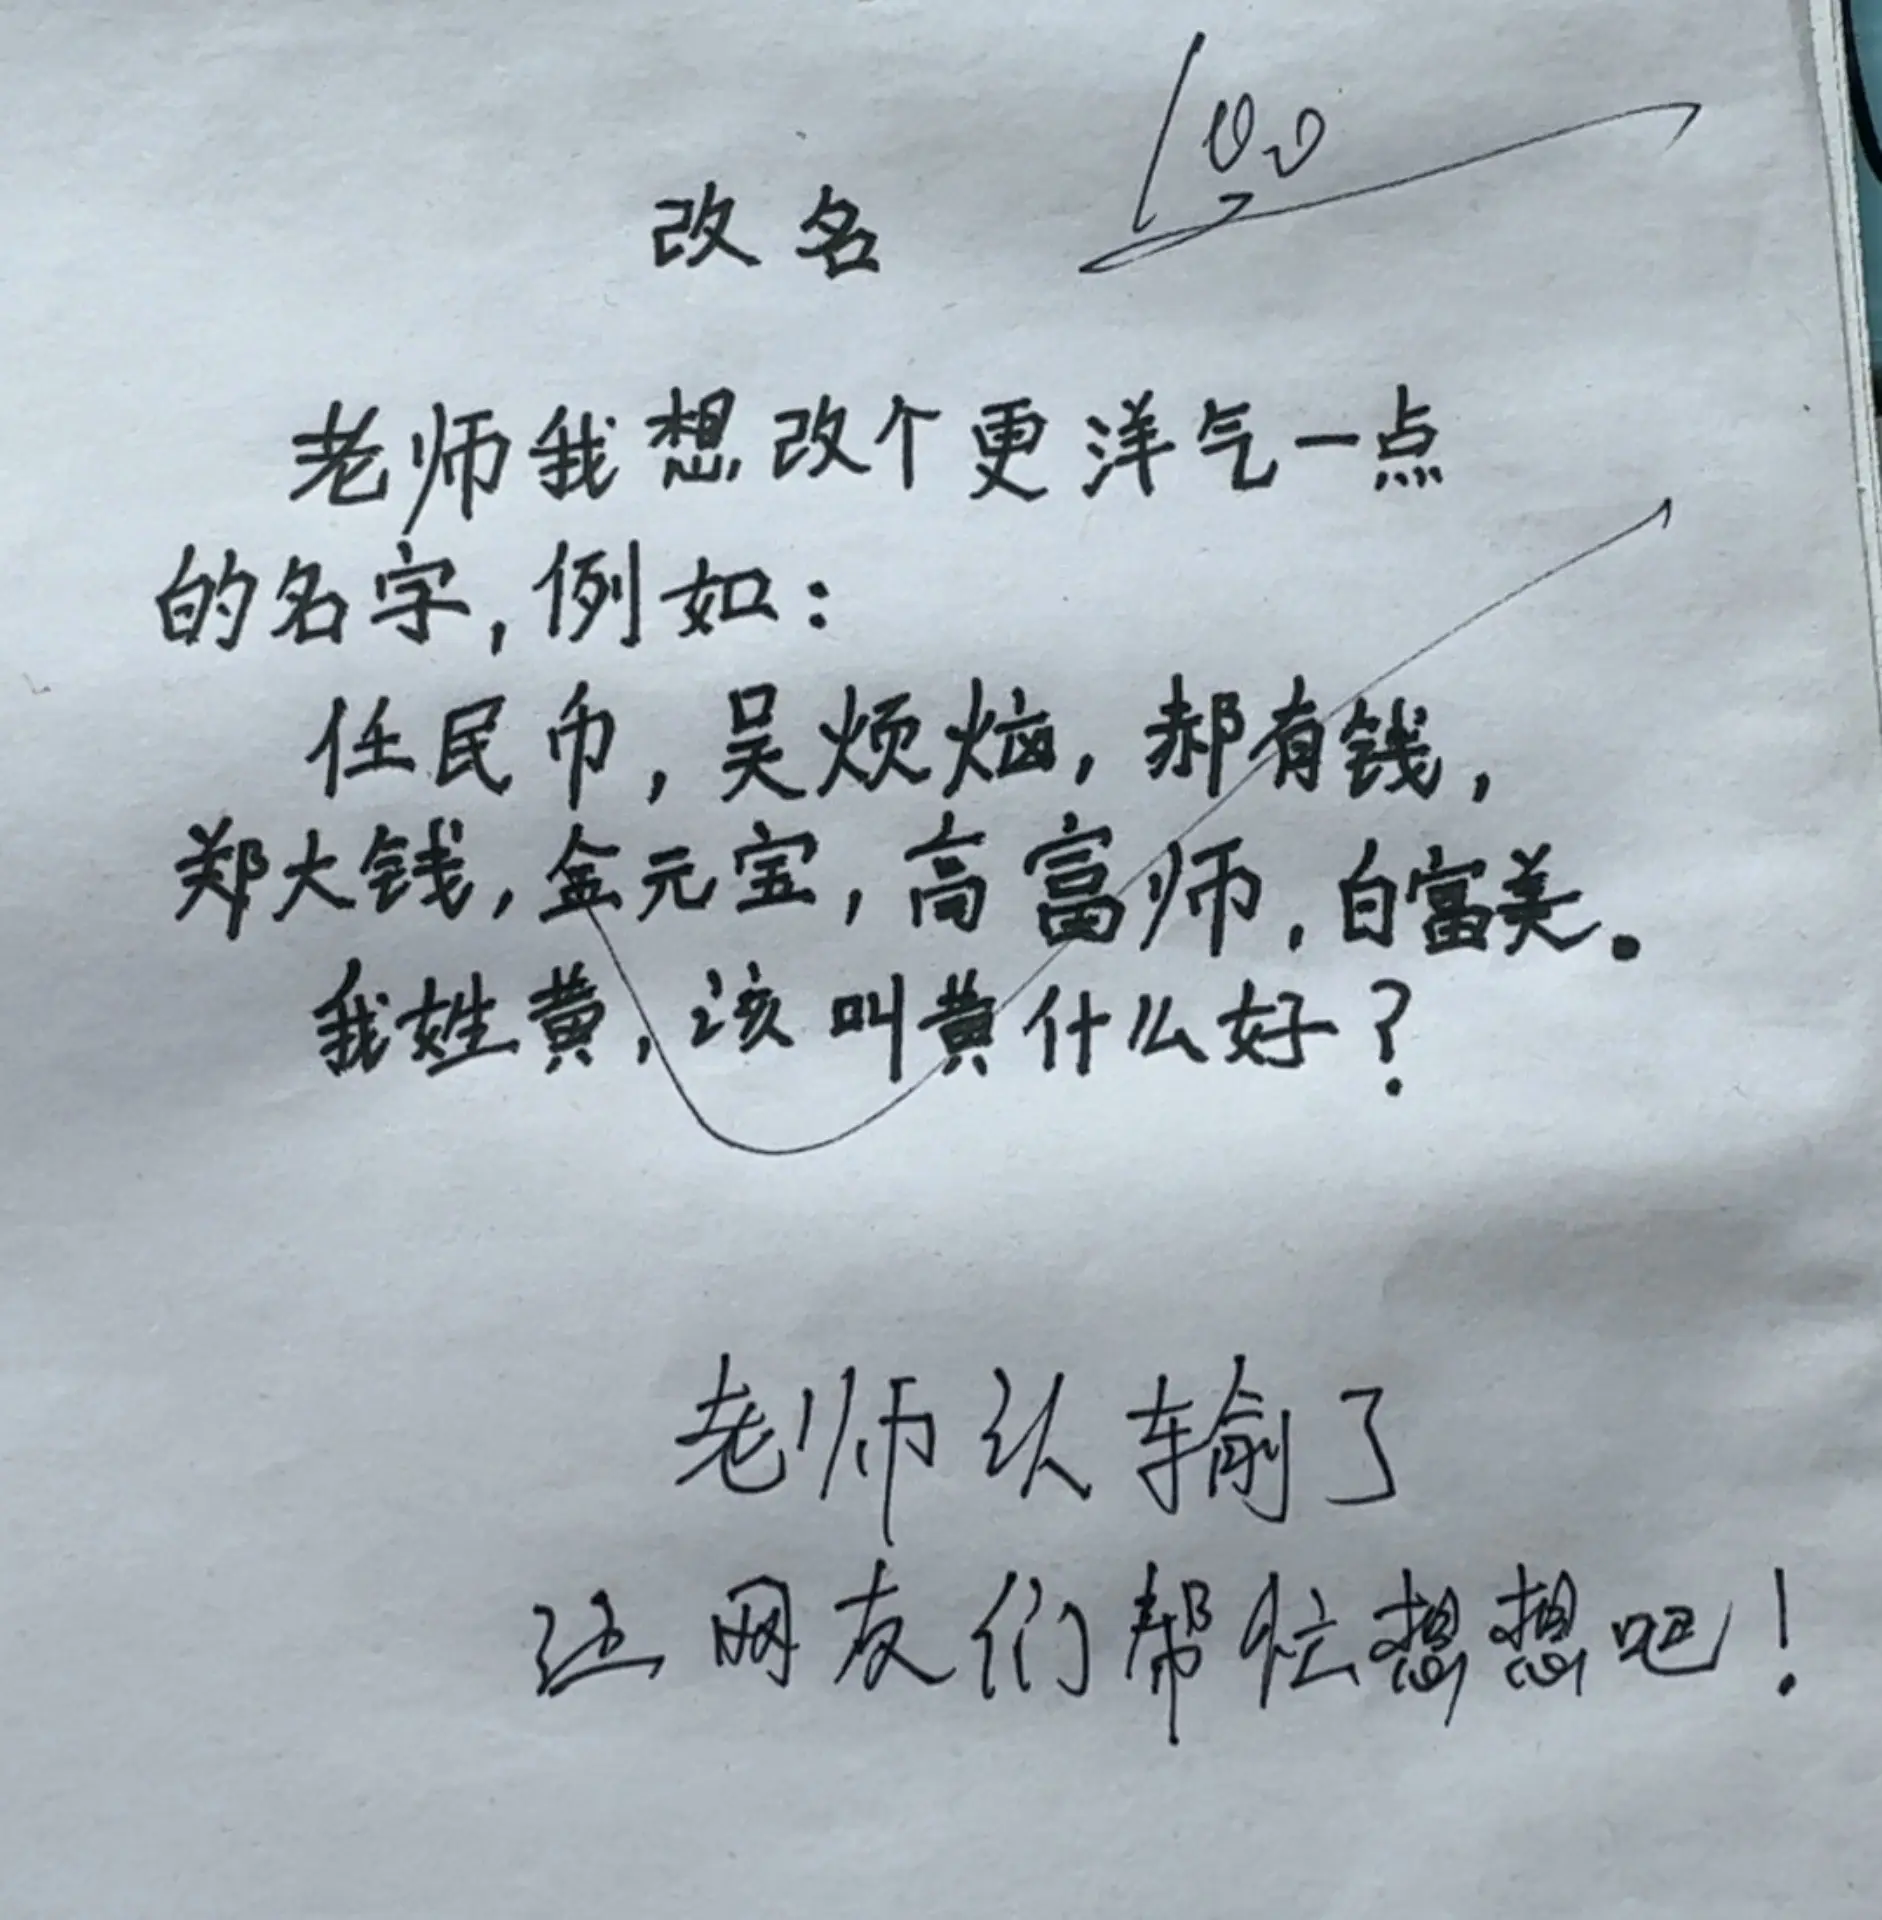 100
改名
老师我想改个更洋气一点
的名字,例如:
任民币,吴烦恼,郝有钱,
郑大钱,金元宝,高富师,白富美。
我姓黄,该叫黄什么好?
老师认输了
让网友们帮忙想想吧!